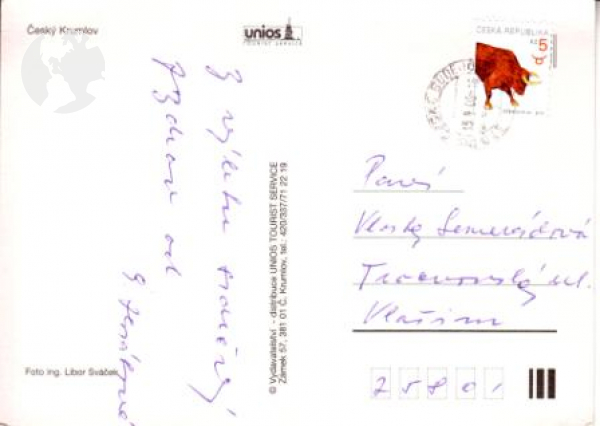 Český Krumlov
unios
TOURIST SERVICE
ČESKÁ REPUBLIKA
Kč 5
Z výletu srdečný
pozdrav od
© Vydavatelství - distribuce UNIOS TOURIST SERVICE
Zámek 57, 381 01 Č. Krumlov, tel.: 420/337/71 22 19
Paní
Vlasta Semerádová
ul.
Vlašim
25801
Foto ing. Libor Sváček